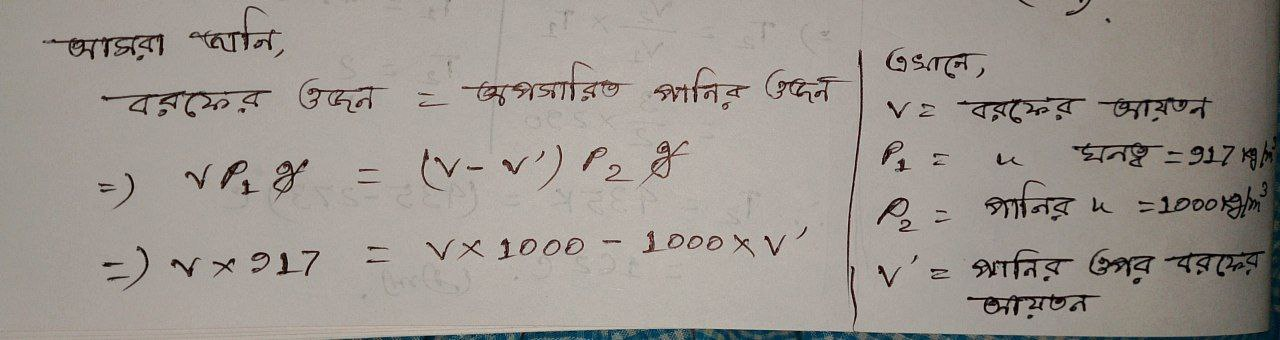 আমরা জানি,
বরফের ওজন = অপসারিত পানির ওজন
=) VP₁g = (V - V') P₂ g
=) V × 917 = V × 1000 - 1000 × V'
এখানে,
V = বরফের আয়তন
P₁ = " ঘনত্ব = 917 kg/m³
P₂ = পানির " = 1000 kg/m³
V' = পানির ওপর বরফের
আয়তন